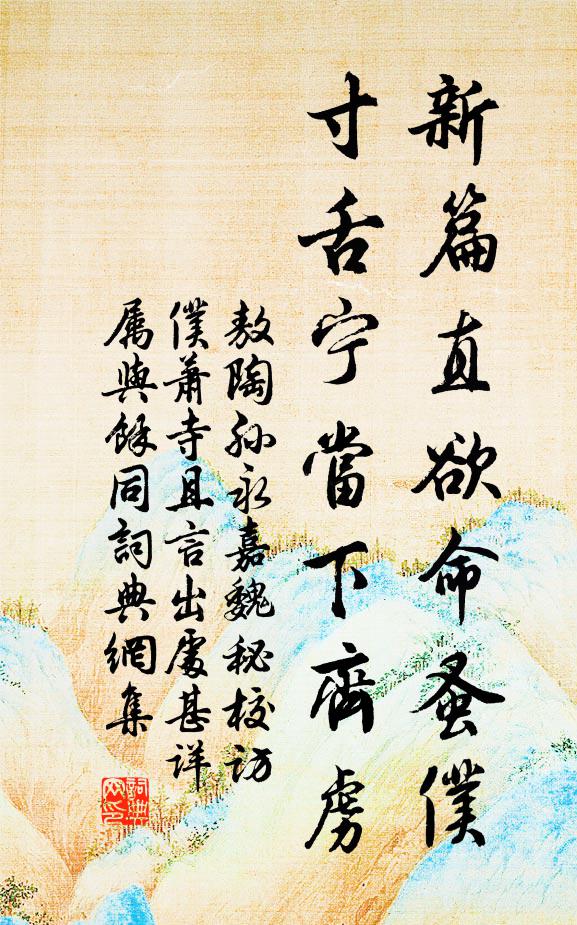 新篇直欲命蚤僕
寸舌宁當下齊虜
敖陶孫永嘉魏秘校訪
僕蕭寺且言出處甚详
属與餘同詞典網集